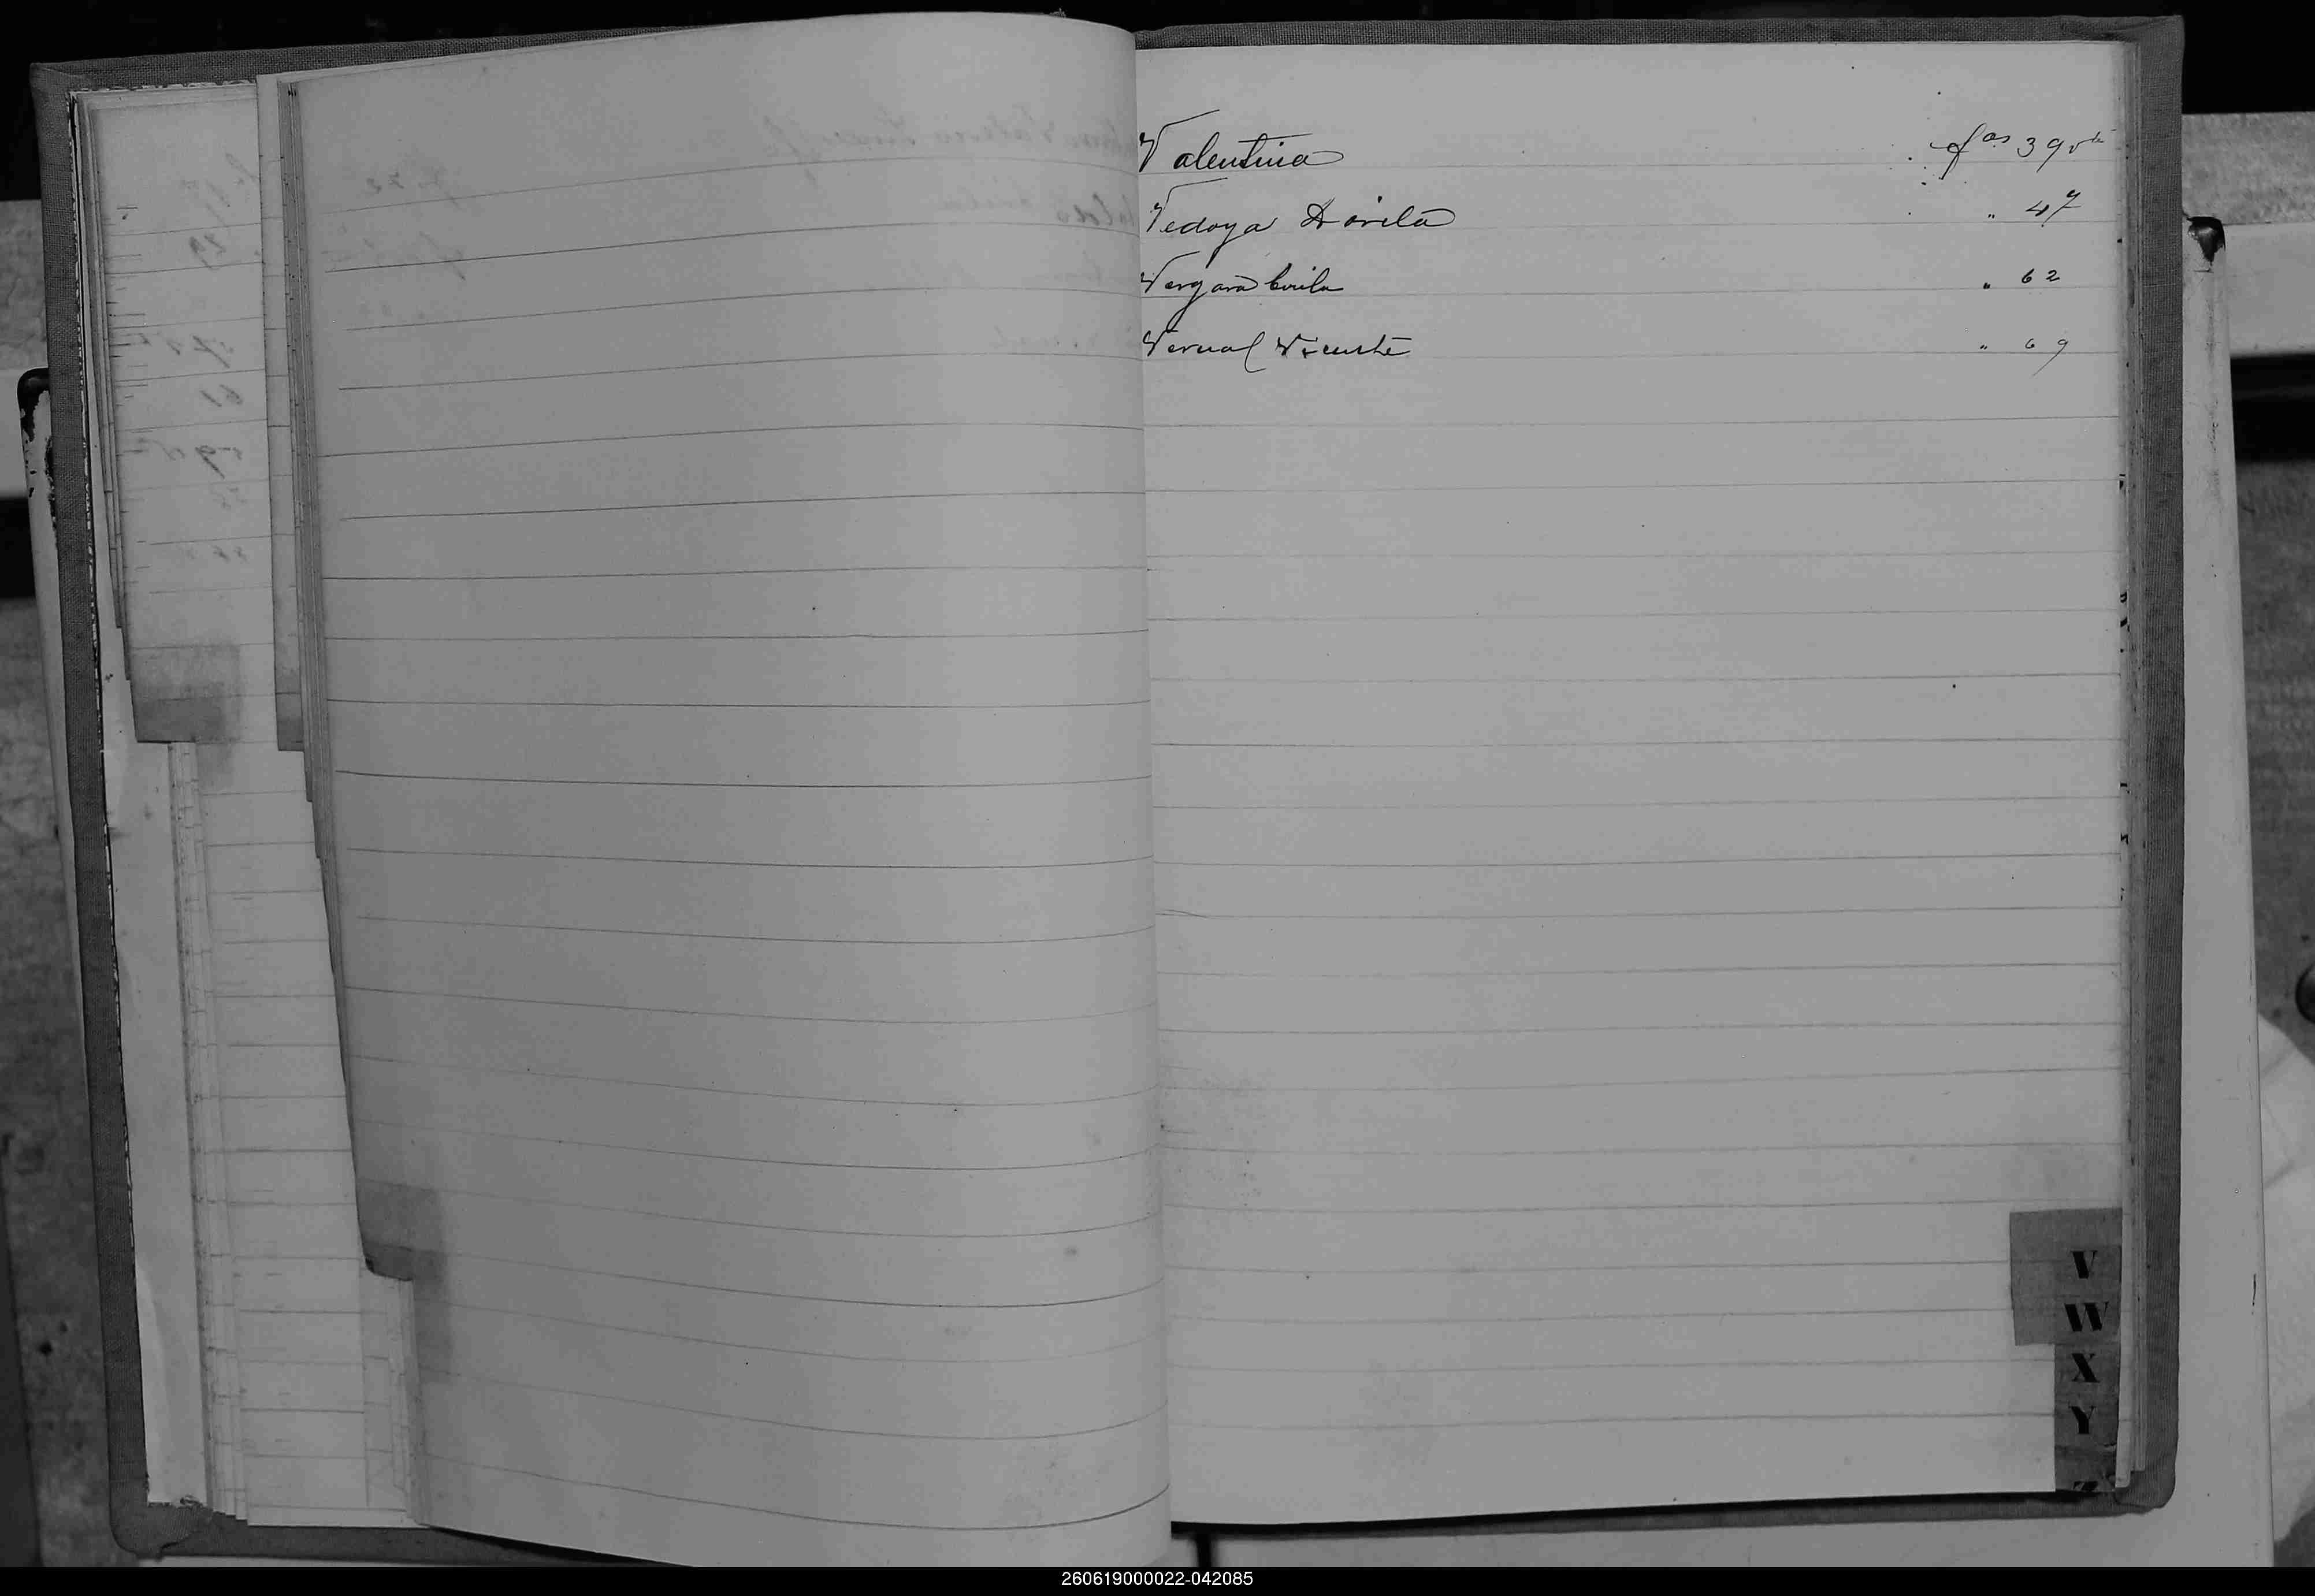 Valentina fas 39 vta
Vedoya Dorila " 47
Vergara " 62
Vernal Vicente " 69
V
W
X
Y
Z
260619000022-042085